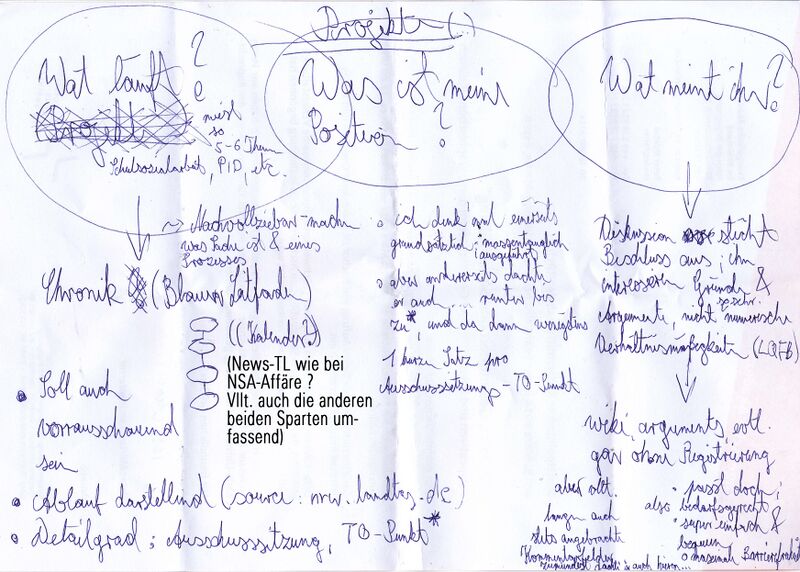 Projekte (.)
Wat läuft?
(Projekt)
meist
so
5-6 Themen
Schulsozialarbeit, PID, etc.
~> Nachvollziehbar-machen
was Sache ist & eines
Prozesses
Chronik (Blauer Leitfaden)
((Kalender?))
(News-TL wie bei
NSA-Affäre ?
Vllt. auch die anderen
beiden Sparten um-
fassend)
Soll auch
vorrausschauend
sein
Ablauf darstellend (source: nrw.landtag.de)
Detailgrad: Ausschusssitzung, TO-Punkt*
Was ist meine
Position?
ich denk' mal einerseits
grundsätzlich massentauglich
(ausgeführt)
aber andererseits dachte
er auch runter bis
zu*, und da dann wenigstens
1 kurzen Satz pro
Ausschusssitzung-TO-Punkt
Wat meint ihr?
Diskussion sticht
Beschluss aus; ihn
interessieren Gründe &
Argumente, nicht numerische
Verhältnismäßigkeit (LQFB)
wiki, arguments, evtl.
gar ohne Registrierung
passt doch;
also bedarfsgerecht
super einfach &
bequem
maximale Barrierefreiheit
aber vllt.
langen auch
stets angebrachte
Kommentarfelder
zumindest auch